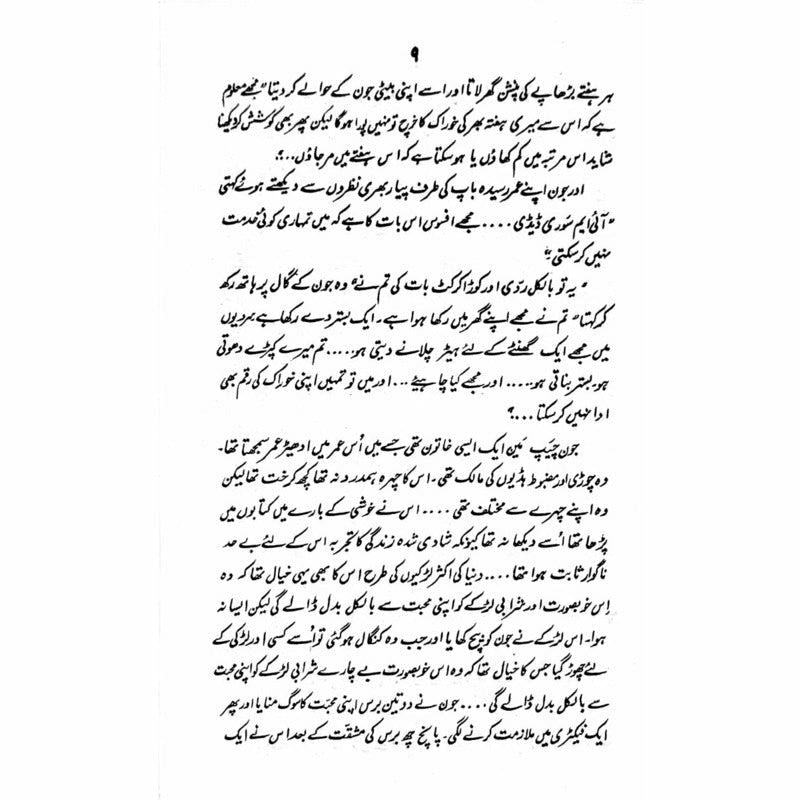 ۹
ہر ہفتے بڑھاپے کی پنشن گھر لاتا اور اسے اپنی بیٹی جون کے حوالے کر دیتا "مجھے معلوم
ہے کہ اس سے میری ہفتہ بھر کی خوراک کا خرچ تو نہیں پورا ہوگا لیکن پھر بھی کوشش کر دیکھنا
شاید اس مرتبہ میں کم کھاؤں یا ہو سکتا ہے کہ اس ہفتے میں مر جاؤں...."
اور جون اپنے عمر رسیدہ باپ کی طرف پیار بھری نظروں سے دیکھتے ہوئے کہتی
"آئی ایم سوری ڈیڈی.... مجھے افسوس اس بات کا ہے کہ میں تمہاری کوئی خدمت
نہیں کر سکتی۔"
"یہ تو بالکل ردّی اور کوڑا کرکٹ بات کی تم نے" وہ جون کے گال پر ہاتھ رکھ
کر کہتا "تم نے مجھے اپنے گھر میں رکھا ہوا ہے۔ ایک بستر دے رکھا ہے سردیوں
میں مجھے ایک گھنٹے کے لئے ہیٹر چلانے دیتی ہو..... تم میرے کپڑے دھوتی
ہو۔ بستر بناتی ہو..... اور مجھے کیا چاہیئے... اور میں تو تمہیں اپنی خوراک کی رقم بھی
ادا نہیں کر سکتا....؟
جون چیپ مین ایک ایسی خاتون تھی جسے میں اُس عمر میں ادھیڑ عمر سمجھتا تھا۔
وہ چوڑی اور مضبوط ہڈیوں کی مالک تھی۔ اس کا چہرہ ہمدرد نہ تھا کچھ کرخت تھا لیکن
وہ اپنے چہرے سے مختلف تھی.... اس نے خوشی کے بارے میں کتابوں میں
پڑھا تھا اُسے دیکھا نہ تھا کیونکہ شادی شدہ زندگی کا تجربہ اس کے لئے بے حد
ناگوار ثابت ہوا تھا.... دنیا کی اکثر لڑکیوں کی طرح اس کا بھی یہی خیال تھا کہ وہ
اِس خوبصورت اور شرابی لڑکے کو اپنی محبت سے بالکل بدل ڈالے گی لیکن ایسا نہ
ہوا۔ اس لڑکے نے جون کو بیچ کھایا اور جب وہ کنگال ہو گئی تو اُسے کسی اور لڑکی کے
لئے چھوڑ گیا جس کا خیال تھا کہ وہ اس خوبصورت بے چارے شرابی لڑکے کو اپنی محبت
سے بالکل بدل ڈالے گی.... جون نے دو تین برس اپنی محبّت کا سوگ منایا اور پھر
ایک فیکٹری میں ملازمت کرنے لگی۔ پانچ چھ برس کی مشقّت کے بعد اس نے ایک